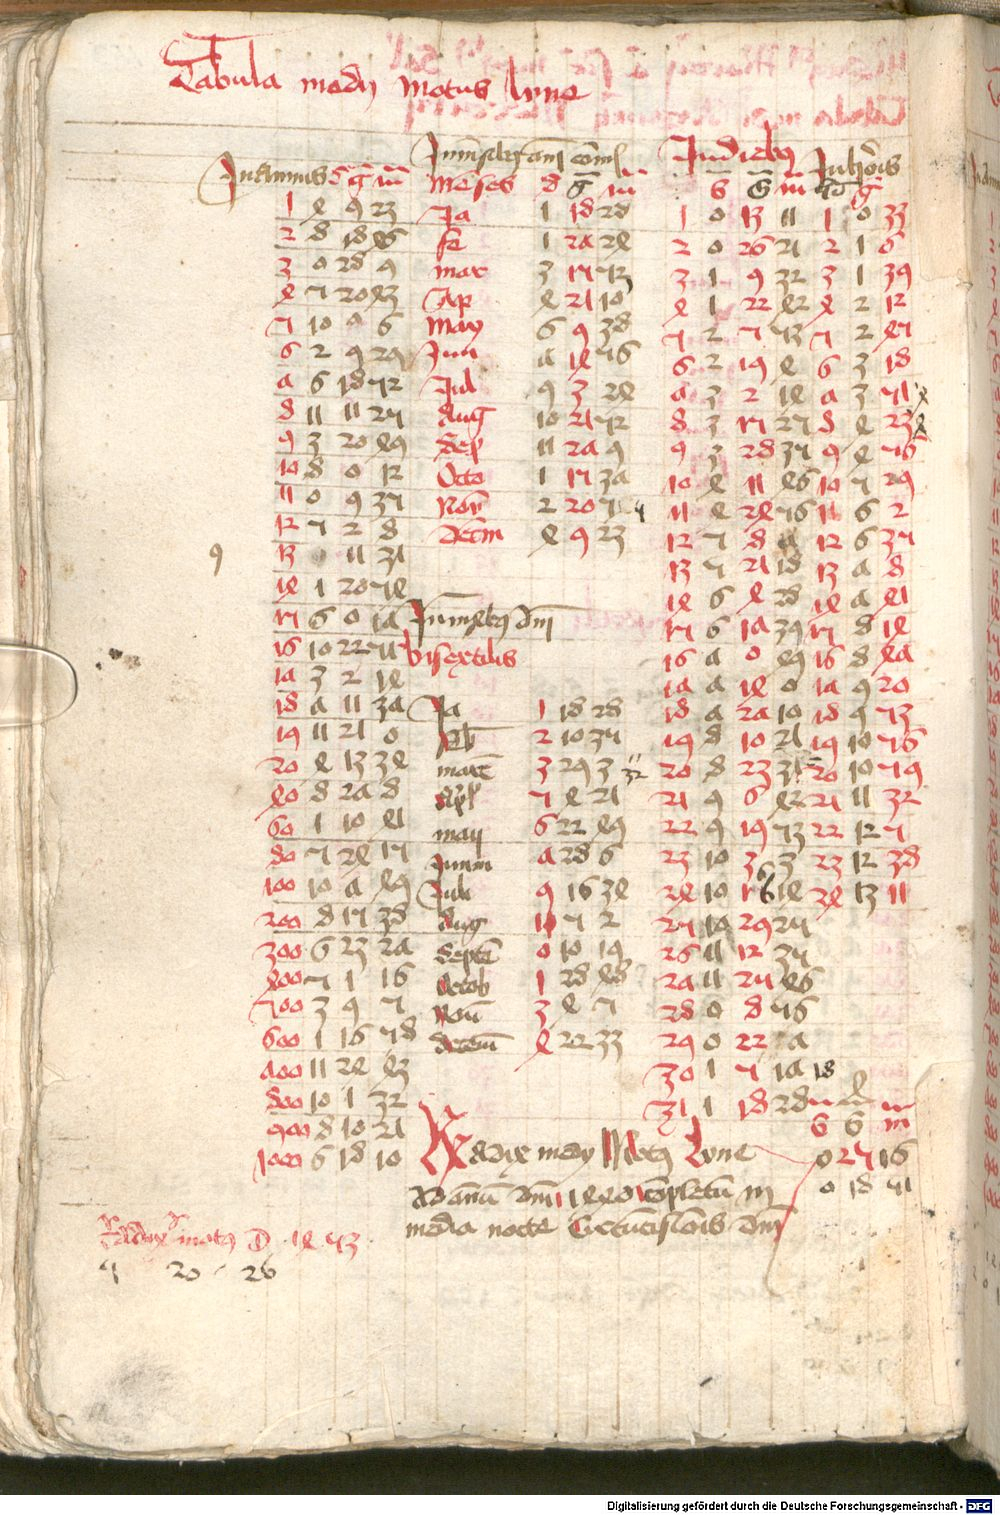 Tabula medij motus lune
In Annis S g m
1 4 9 23
2 8 18 46
3 0 28 9
4 5 20 43
5 10 0 6
6 2 9 29
7 6 18 52
8 11 11 25
9 3 20 49
10 8 0 12
11 0 9 35
12 5 2 8
9 13 11 31
14 1 20 54
15 6 0 17
16 10 22 51
17 3 2 14
18 7 11 37
19 11 21 0
20 4 13 34
40 8 27 8
60 1 10 41
80 5 24 15
100 10 7 49
200 8 15 38
300 6 23 27
400 5 1 16
500 3 9 5
600 1 16 58
700 11 24 43
800 10 1 32
900 8 10 21
1000 6 18 10
Menses S g m
Ja 1 18 28
fe 1 27 24
mar 3 15 52
Ap 4 21 10
May 6 9 38
Jun 7 14 56
Jul 9 3 24
Aug 10 21 52
Sep 11 27 9
Octo 1 15 37
Nov 2 20 55
Decem 4 9 23
bisextilis
Ja 1 18 28
Feb 2 10 35
marc 3 29 3 32
Apl 5 4 21
maij 6 22 49
Junii 7 28 6
Juli 9 16 34
Aug 11 5 2
septe 0 10 19
octob 1 28 48
Nov 3 4 5
decem 4 22 33
In diebus
S G m
1 0 13 11
2 0 26 21
3 1 9 32
4 1 22 42
5 2 5 53
6 2 19 4
7 3 2 14
8 3 15 25
9 3 28 35
10 4 11 46
11 4 24 56
12 5 8 7
13 5 21 18
14 6 4 28
15 6 17 39
16 7 0 49
17 7 14 0
18 7 27 10
19 8 10 21
20 8 23 31
21 9 6 42
22 9 19 53
23 10 3 3
24 10 16 14
25 10 29 25
26 11 12 35
27 11 25 46
28 0 8 56
29 0 22 7
30 1 5 17 18
31 1 18 28
In horis
1 0 33
2 1 6
3 1 39
4 2 12
5 2 45
6 3 18
7 3 51
8 4 23
9 4 56
10 5 29
11 6 2
12 6 35
13 7 8
14 7 41
15 8 14
16 8 47
17 9 20
18 9 53
19 10 56
20 10 59
21 11 32
22 12 5
23 12 38
24 13 11
S G m
Radix medij Motus Lune 0 25 16
Ad annum dni 1440 completum in 0 18 51
media nocte Circumcisionis dni
Radix motus D 1453
5 20 26
Digitalisierung gefördert durch die Deutsche Forschungsgemeinschaft - DFG